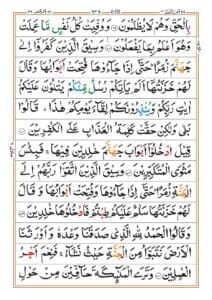 بِالْحَقِّ وَهُمْ لَا يُظْلَمُونَ ۝ وَوُفِّيَتْ كُلُّ نَفْسٍ مَّا عَمِلَتْ
وَهُوَ أَعْلَمُ بِمَا يَفْعَلُونَ ۝ وَسِيقَ الَّذِينَ كَفَرُوا إِلَىٰ
جَهَنَّمَ زُمَرًا حَتَّىٰ إِذَا جَاءُوهَا فُتِحَتْ أَبْوَابُهَا وَقَالَ
لَهُمْ خَزَنَتُهَا أَلَمْ يَأْتِكُمْ رُسُلٌ مِّنكُمْ يَتْلُونَ عَلَيْكُمْ
آيَاتِ رَبِّكُمْ وَيُنذِرُونَكُمْ لِقَاءَ يَوْمِكُمْ هَٰذَا قَالُوا
بَلَىٰ وَلَٰكِنْ حَقَّتْ كَلِمَةُ الْعَذَابِ عَلَى الْكَافِرِينَ ۝
قِيلَ ادْخُلُوا أَبْوَابَ جَهَنَّمَ خَالِدِينَ فِيهَا فَبِئْسَ
مَثْوَى الْمُتَكَبِّرِينَ ۝ وَسِيقَ الَّذِينَ اتَّقَوْا رَبَّهُمْ إِلَى
الْجَنَّةِ زُمَرًا حَتَّىٰ إِذَا جَاءُوهَا وَفُتِحَتْ أَبْوَابُهَا وَقَالَ
لَهُمْ خَزَنَتُهَا سَلَامٌ عَلَيْكُمْ طِبْتُمْ فَادْخُلُوهَا خَالِدِينَ ۝
وَقَالُوا الْحَمْدُ لِلَّهِ الَّذِي صَدَقَنَا وَعْدَهُ وَأَوْرَثَنَا
الْأَرْضَ نَتَبَوَّأُ مِنَ الْجَنَّةِ حَيْثُ نَشَاءُ فَنِعْمَ أَجْرُ
الْعَامِلِينَ ۝ وَتَرَى الْمَلَائِكَةَ حَافِّينَ مِنْ حَوْلِ